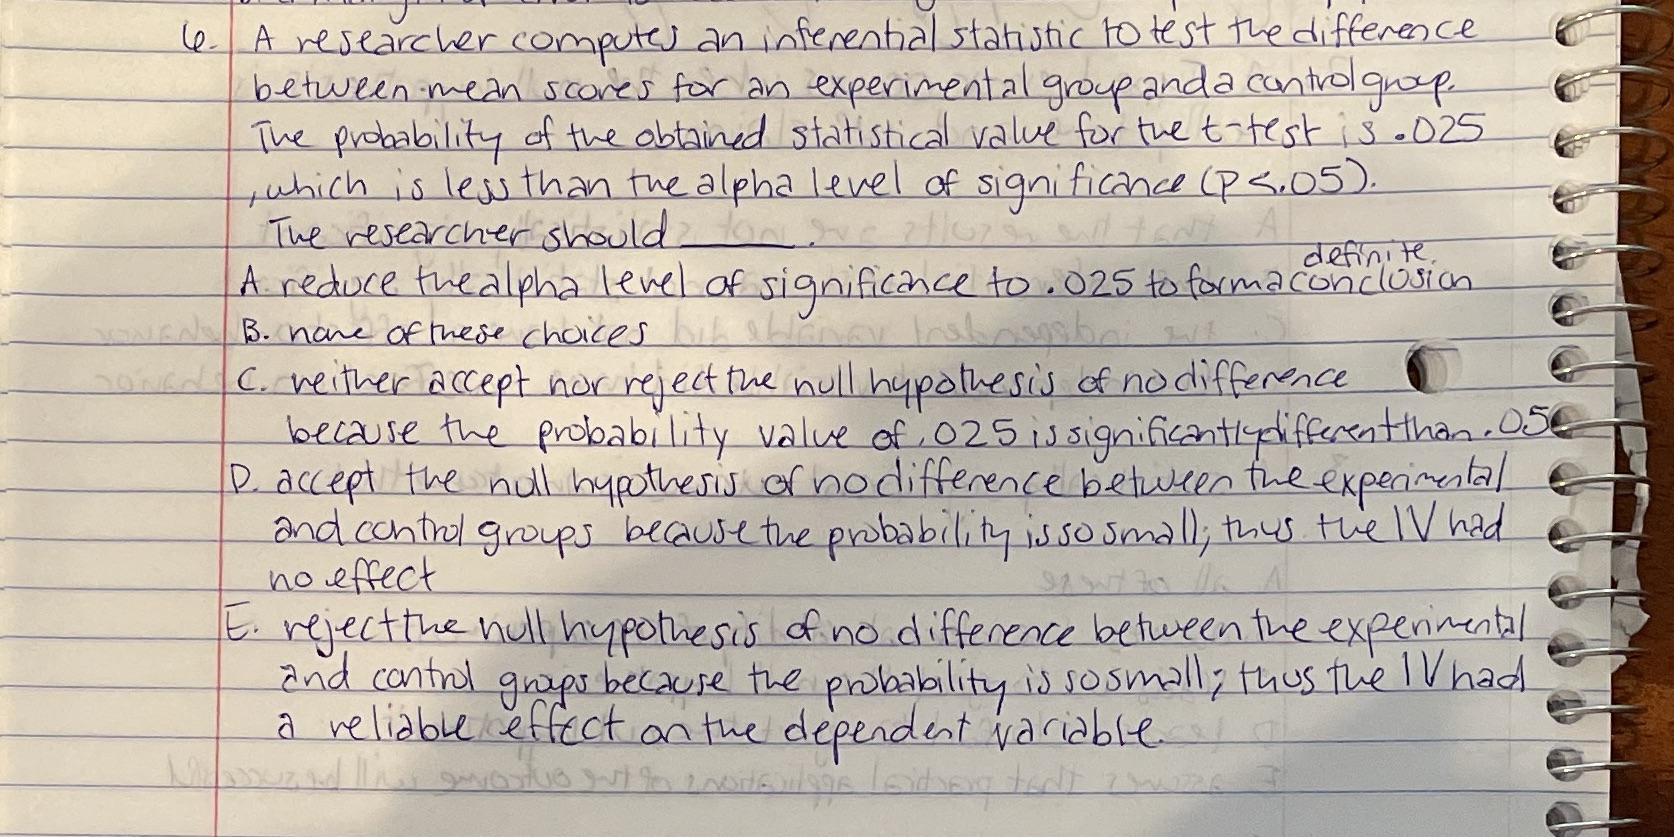 6. A researcher computes an inferential statistic to test the difference
between mean scores for an experimental group and a control group.
The probability of the obtained statistical value for the t-test is .025
, which is less than the alpha level of significance (P<.05).
The researcher should ______.
definite
A. reduce the alpha level of significance to .025 to form a conclusion
B. none of these choices
C. neither accept nor reject the null hypothesis of no difference
because the probability value of .025 is significantly different than .05
D. accept the null hypothesis of no difference between the experimental
and control groups because the probability is so small; thus the IV had
no effect
E. reject the null hypothesis of no difference between the experimental
and control groups because the probability is so small; thus the IV had
a reliable effect on the dependent variable.